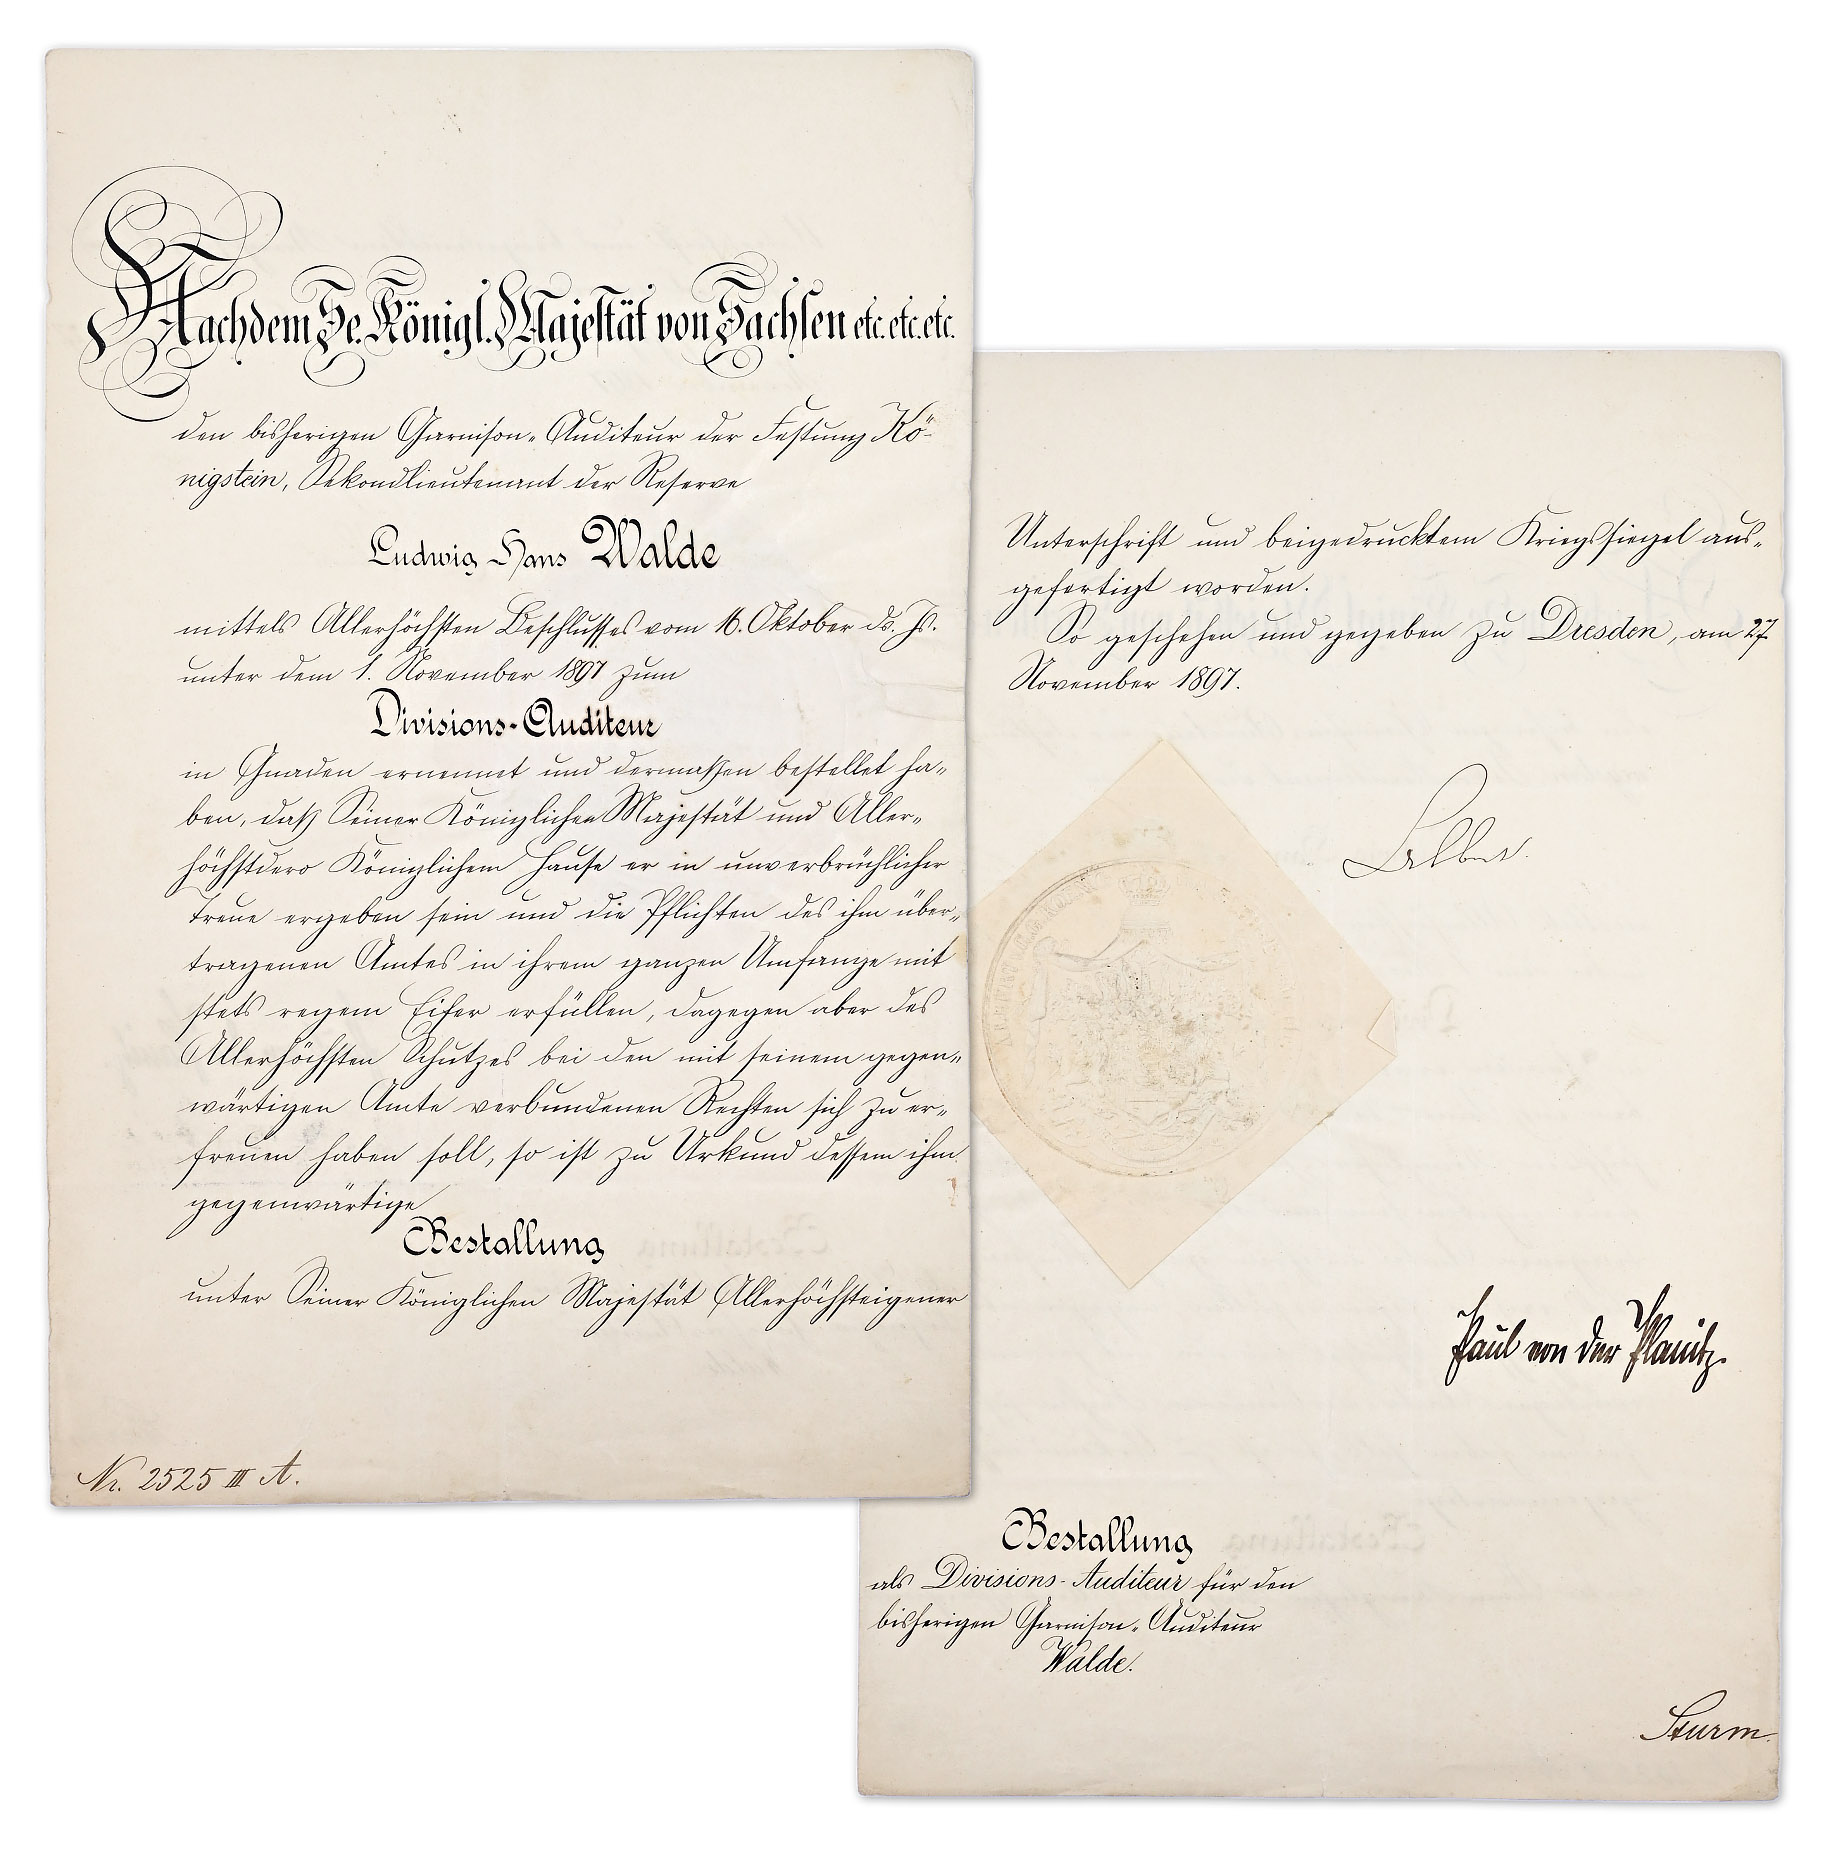 Nachdem Se. Königl. Majestät von Sachsen etc. etc. etc.
den bisherigen Garnison-Auditeur der Festung Kö-
nigstein, Sekondlieutenant der Reserve
Ludwig Hans Walde
mittels Allerhöchsten Beschlusses vom 16. Oktober ds. Js.
unter dem 1. November 1897 zum
Divisions-Auditeur
in Gnaden ernennet und dermaßen bestellet ha-
ben, daß Seiner Königlichen Majestät und Aller-
höchstdero Königlichem Hause er in unverbrüchlicher
Treue ergeben sein und die Pflichten des ihm über-
tragenen Amtes in ihrem ganzen Umfange mit
stets regem Eifer erfüllen, dagegen aber des
Allerhöchsten Schutzes bei den mit seinem gegen-
wärtigen Amte verbundenen Rechten sich zu er-
freuen haben soll, so ist zu Urkund dessem ihm
gegenwärtige
Bestallung
unter Seiner Königlichen Majestät Allerhöchsteigener
Nr. 2525 III A.
Unterschrift und beigedrucktem Kriegssiegel aus-
gefertigt worden.
So geschehen und gegeben zu Dresden, am 27
November 1897.
Paul von der Planitz.
Bestallung
als Divisions-Auditeur für den
bisherigen Garnison-Auditeur
Walde.
Sturm.